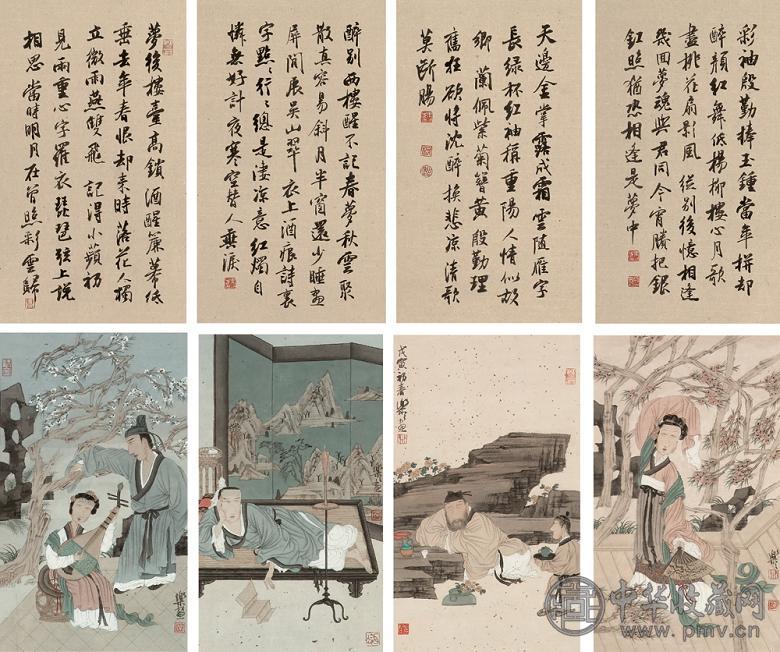 彩袖殷勤捧玉鍾當年拼却
醉顏紅舞低楊柳樓心月歌
盡桃花扇影風 從別後憶相逢
幾回夢魂與君同今宵賸把銀
釭照猶恐相逢是夢中
天邊金掌露成霜雲隨雁字
長綠杯紅袖稱重陽人情似故
鄉 蘭佩紫菊簪黃殷勤理
舊狂欲將沈醉換悲涼清歌
莫斷腸
醉別西樓醒不記春夢秋雲聚
散真容易斜月半窗還少睡畫
屏閑展吳山翠 衣上酒痕詩裏
字點〻行〻總是淒涼意紅燭自
憐無好計夜寒空替人垂淚
夢後樓臺高鎖酒醒簾幕低
垂去年春恨却來時落花人獨
立微雨燕雙飛 記得小蘋初
見兩重心字羅衣琵琶弦上說
相思當時明月在曾照彩雲歸
戊寅初春
中华收藏网
www.pmv.cn